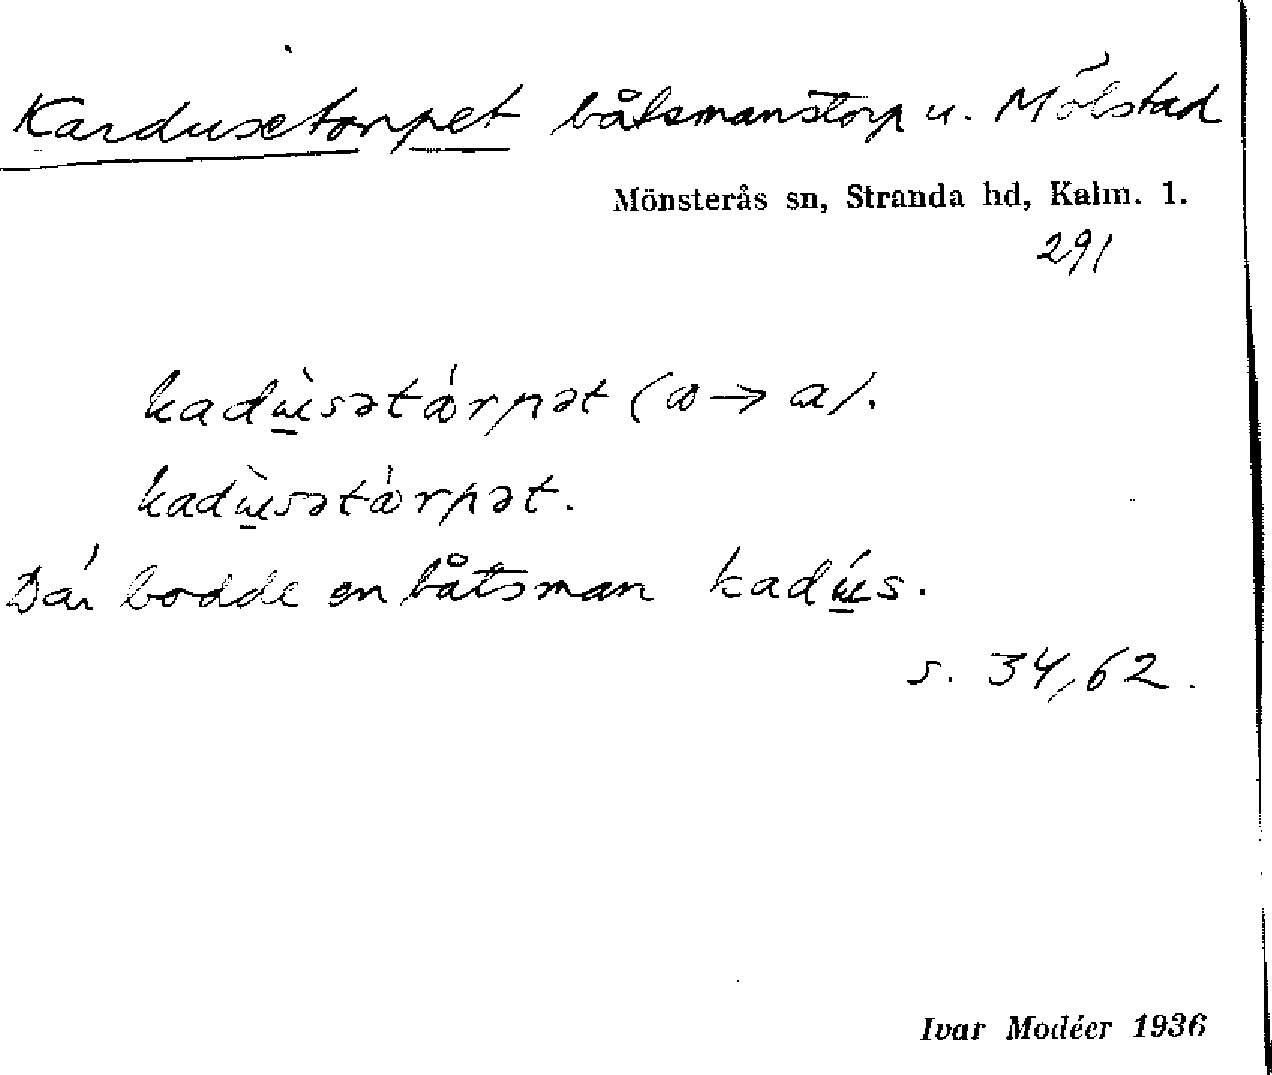 Kardusetorpet båtsmanstorp u. Mölstad
Mönsterås sn, Stranda hd, Kalm. l.
291
kadù̱sətǿrpət (ɷ → a).
kadù̱sətǿrpət.
Där bodde en båtsman kadú̱s.
s. 34,62.
Ivar Modéer 1936